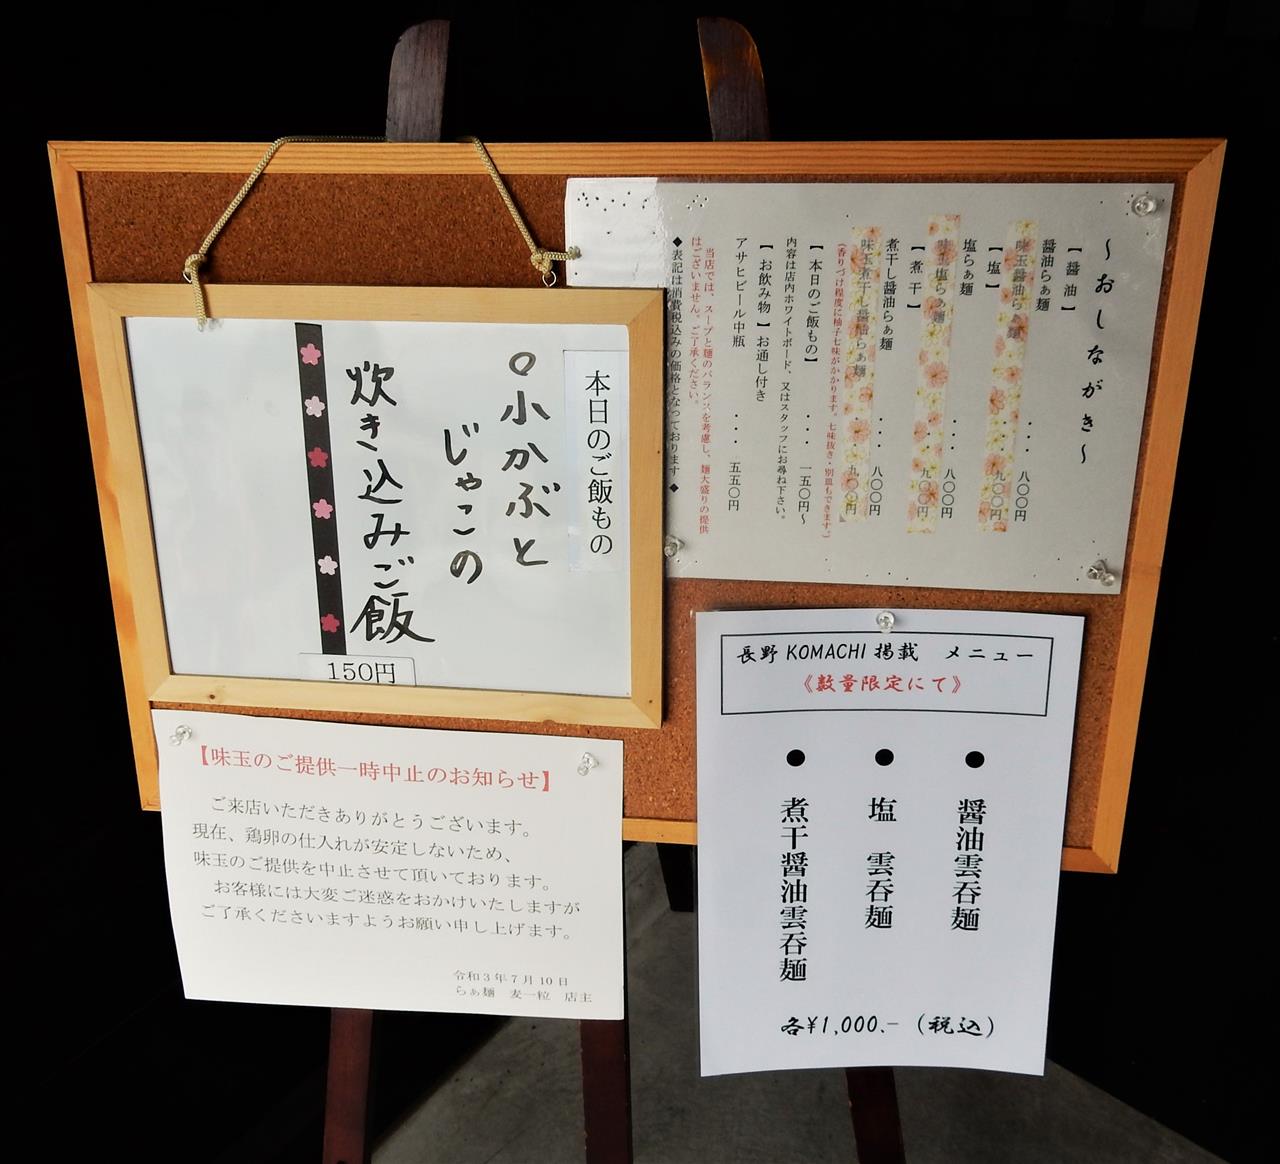 ～おしながき～
【醤油】
醤油らぁ麺 ・・・・ 八〇〇円
味玉醤油らぁ麺 ・・・・ 九〇〇円
【塩】
塩らぁ麺 ・・・・ 八〇〇円
味玉塩らぁ麺 ・・・・ 九〇〇円
【煮干】
煮干し醤油らぁ麺 ・・・・ 八〇〇円
味玉煮干し醤油らぁ麺 ・・・・ 九〇〇円
(香りづけ程度に柚子七味がかかります。七味抜き・別皿もできます。)
【本日のご飯もの】 ・・・・ 一五〇円～
内容は店内ホワイトボード、又はスタッフにお尋ね下さい。
【お飲み物】お通し付き
アサヒビール中瓶 ・・・・ 五五〇円
当店では、スープと麺のバランスを考慮し、麺大盛りの提供
はございません。ご了承ください。
◆表記は消費税込みの価格となっております◆
本日のご飯もの
○小かぶと
じゃこの
炊き込みご飯
150円
【味玉のご提供一時中止のお知らせ】
ご来店いただきありがとうございます。
現在、鶏卵の仕入れが安定しないため、
味玉のご提供を中止させて頂いております。
お客様には大変ご迷惑をおかけいたしますが
ご了承くださいますようお願い申し上げます。
令和3年7月10日
らぁ麺 麦一粒 店主
長野 KOMACHI 掲載 メニュー
《数量限定にて》
● 醤油雲呑麺
● 塩 雲呑麺
● 煮干醤油雲呑麺
各¥1,000.- (税込)